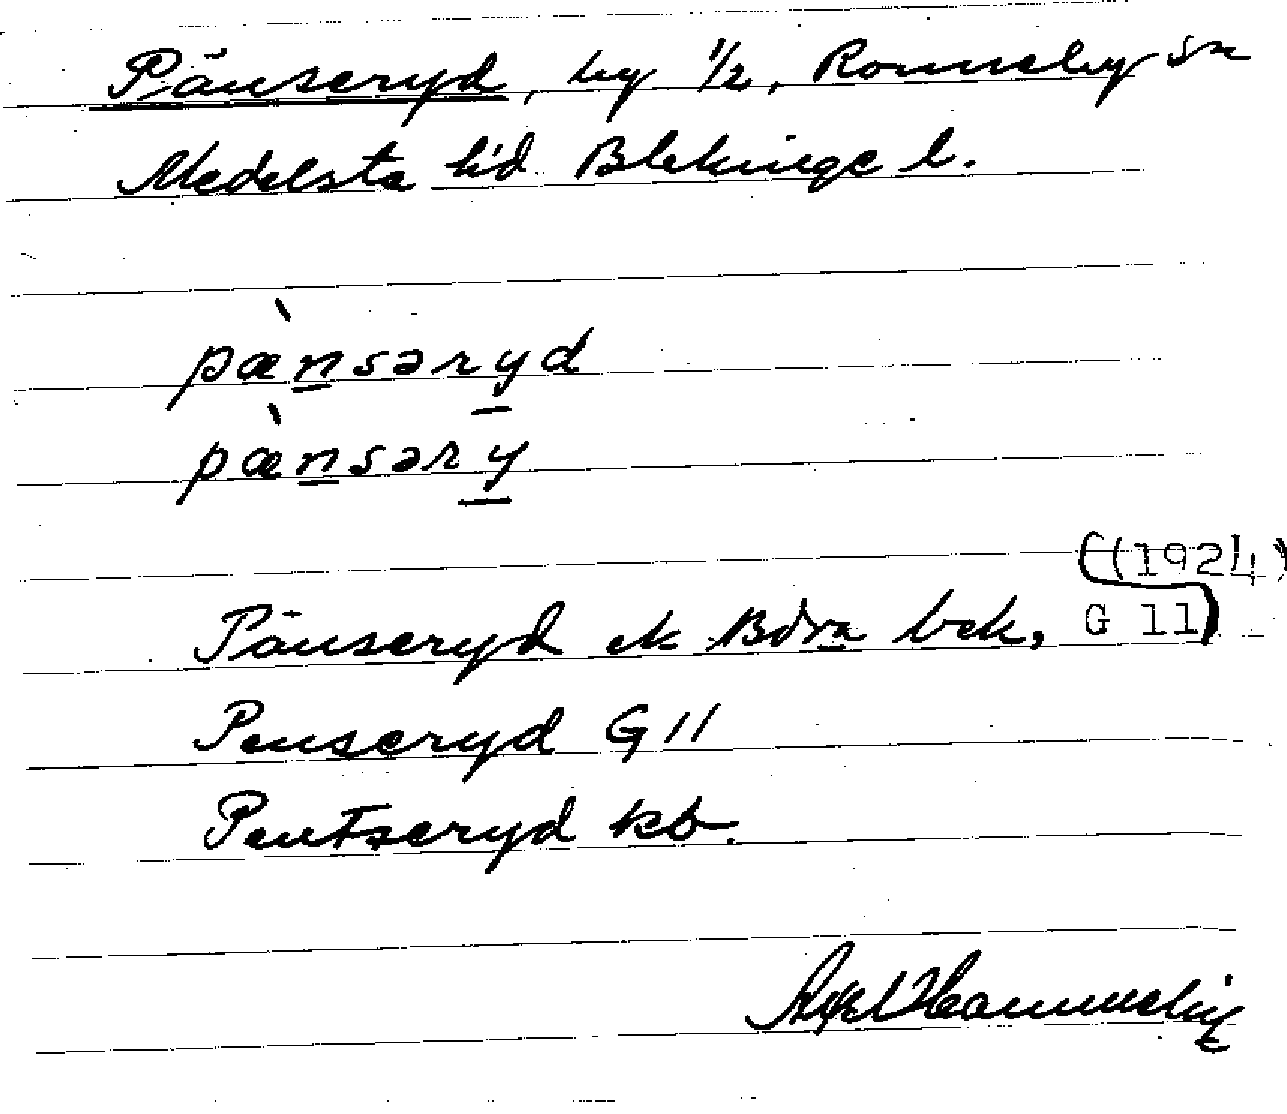 Pänseryd, by 1/2, Ronneby sn
Medelsta hd Blekinge l.
pæ̀nsəryd
pæ̀nsəry
(1924)
Pänseryd ek Böra bek, G 11
Penseryd G 11
Pentseryd kb.
Axel